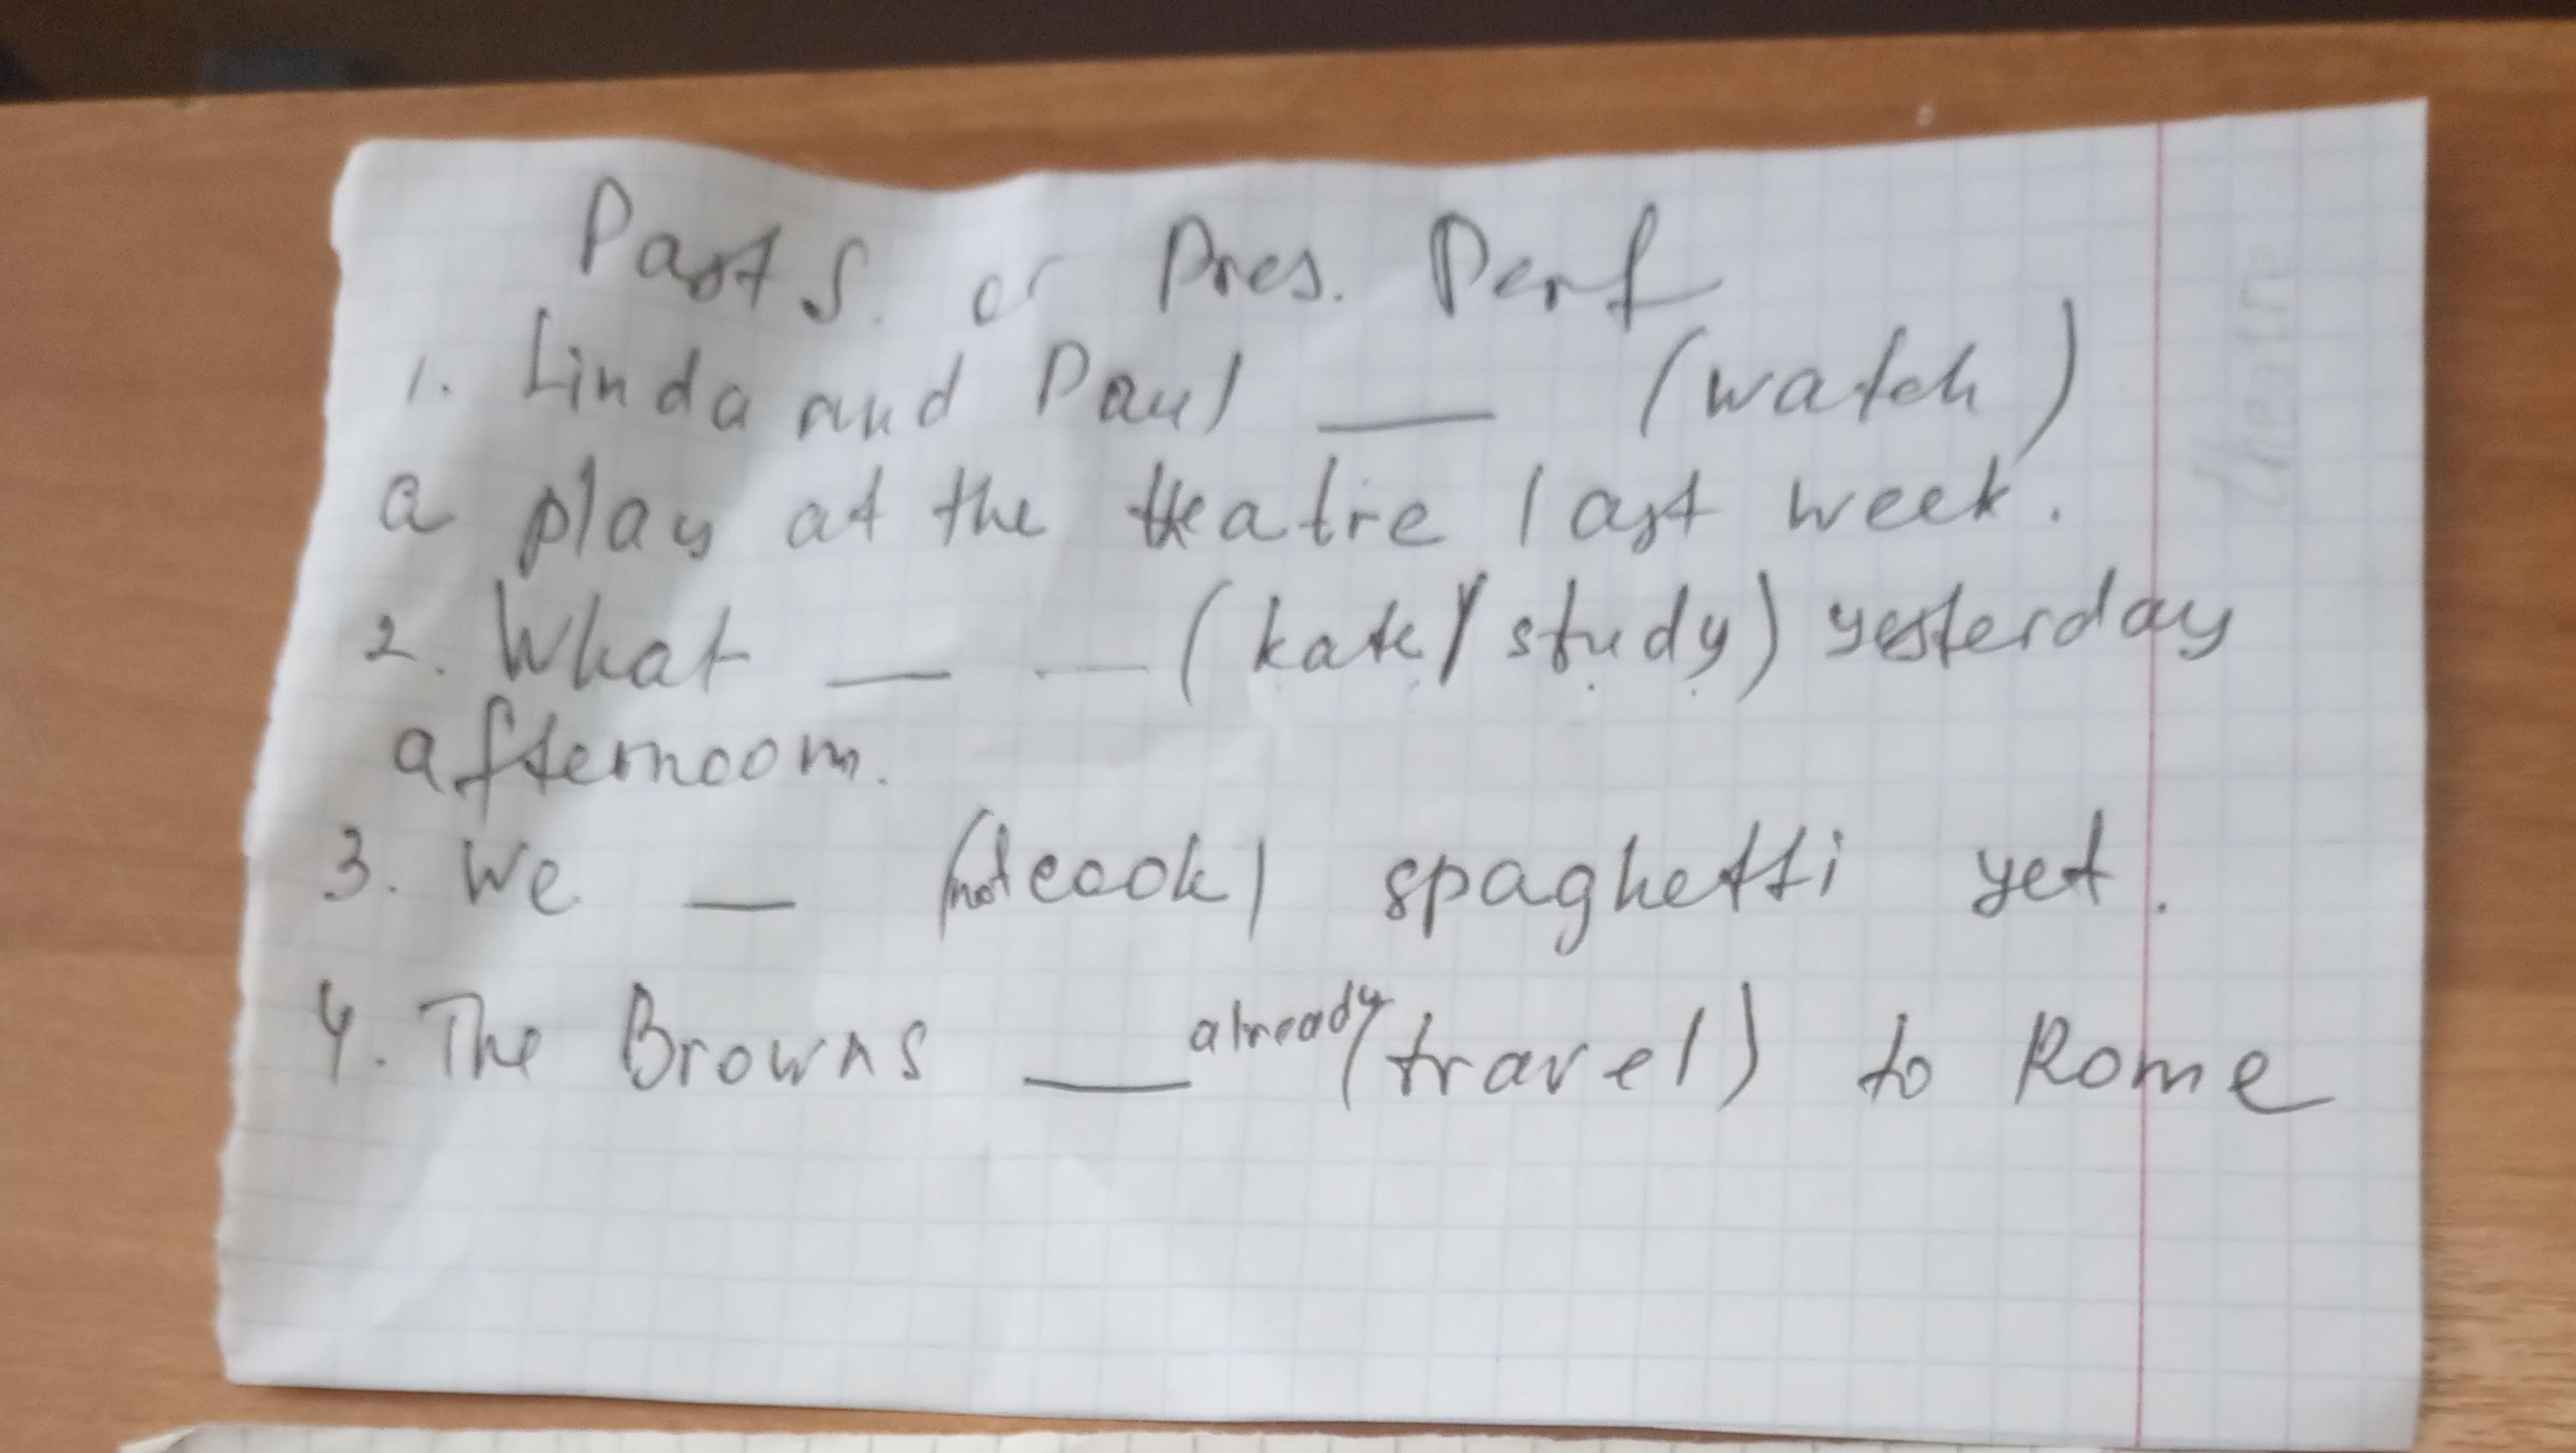 Past S. or Pres. Perf
1. Linda and Paul ___ (watch)
a play at the theatre last week.
2. What __ __ (kate/study) yesterday
afternoom.
3. We __ (not cook) spaghetti yet.
4. The Browns ___ already (travel) to Rome
theatre